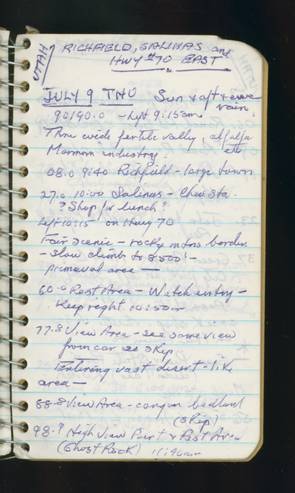 UTAH
RICHFIELD, SALINAS and
HWY #70 EAST
JULY 9 THU Sun & aft & eve
rain.
90190.0 - left 9:15 am.
Thru wide fertile valley, alfalfa
Mormon industry. etc
08.0 9:40 Richfield - large town
27.0 10:00 Salinas - Chev Sta.
? Shop for lunch?
Left 10:15 on Hwy 70
Fair Scenic - rocky mtns border
- slow climb to 8500' -
primeval area —
60.0 Rest Area - Watch entry -
Keep right 10:50 am
77.8 View Area - see same view
from car so skip.
Entering vast desert-like
area —
88.8 View Area - canyon badland
(skip)
98.9 High View Point & Rest Area
(Ghost Rock) 11:40 am